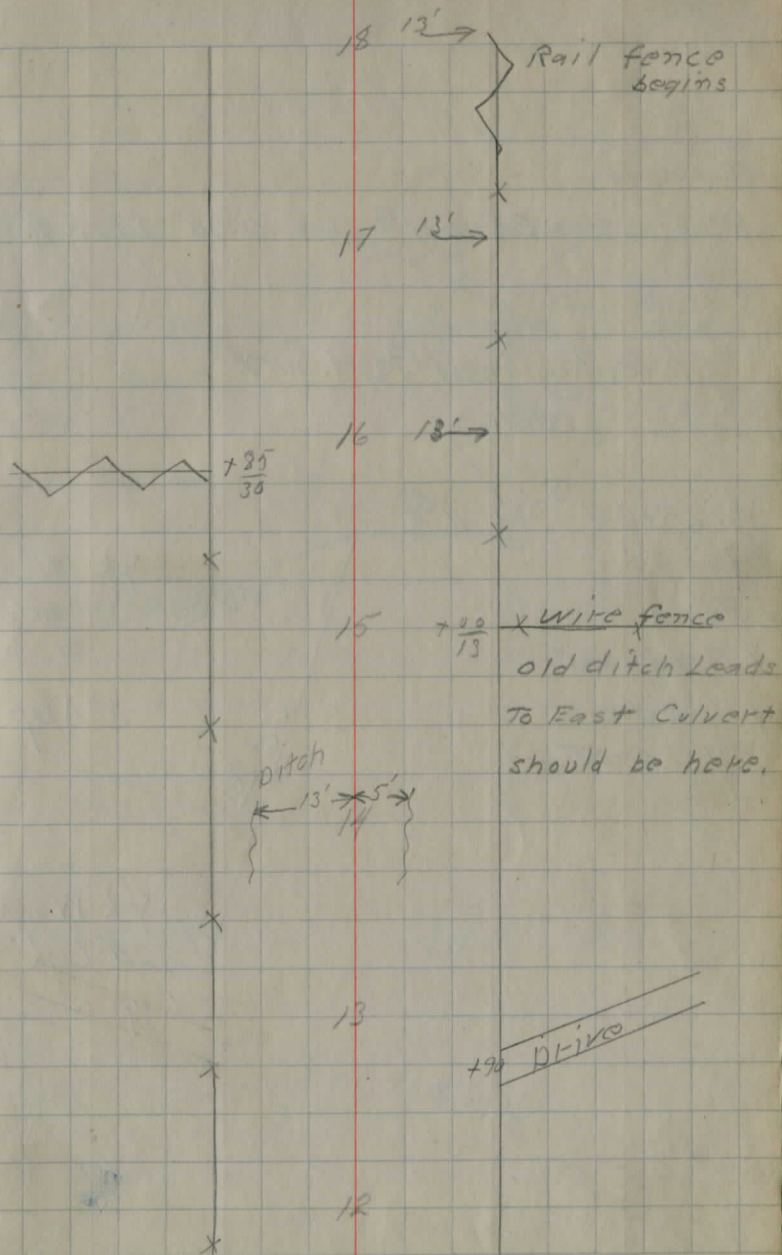 18 13' Rail fence
begins
17 13'
16 13'
+85
30
15 +00
13
wire fence
old ditch Leads
To East Culvert
should be here.
Ditch
13' 5'
14
13
+90 Drive
12